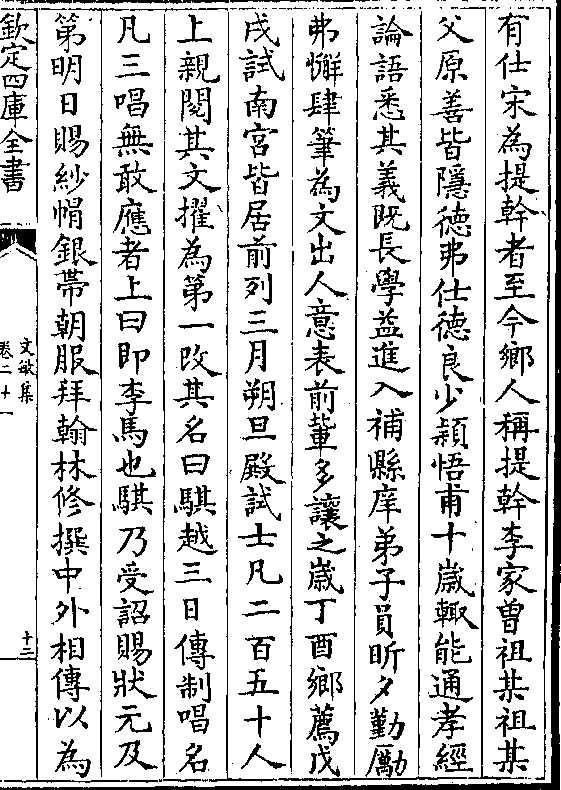 有仕宋為提幹者至今鄉人稱提幹李家曽祖某祖某
父原善皆隱德弗仕德良少頴悟甫十歳輒能通孝經
論語悉其義既長學益進入補縣庠弟子員昕夕勤勵
弗懈肆筆為文出人意表前輩多讓之歳丁酉鄉薦戊
戌試南宫皆居前列三月朔旦殿試士凡二百五十人
上親閱其文擢為第一改其名曰騏越三日傳制唱名
凡三唱無敢應者上曰即李馬也騏乃受詔賜狀元及
第明日賜紗帽銀帶朝服拜翰林修撰中外相傳以為
欽定四庫全書
文敏集
卷二十一
十三